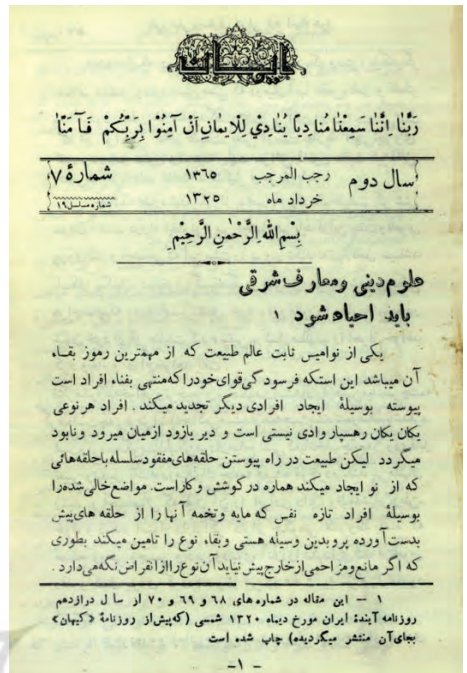 ایمان
رَبَّنا اِنَّنا سَمِعْنا مُنادِیاً یُنادِيْ لِلْایمانِ اَنْ آمِنُوْا بِرَبِّکُمْ فَآمَنّا
سال دوم
رجب المرجب ۱۳۶۵
خرداد ماه ۱۳۲۵
شمارهٔ ۷
شماره مسلسل ۱۹
بِسْمِ اللهِ الرَّحْمٰنِ الرَّحیْمِ
علوم دینی ومعارف شرقی
باید احیاء شود ۱
یکی از نوامیس ثابت عالم طبیعت که از مهمترین رموز بقاء
آن میباشد این استکه فرسودگی قوای خودرا که منتهی بفناء افراد است
پیوسته بوسیلهٔ ایجاد افرادی دیگر تجدید میکند. افراد هر نوعی
یکان یکان رهسپار وادی نیستی است و دیر یازود ازمیان میرود و نابود
میگردد لیکن طبیعت در راه پیوستن حلقه های مفقود سلسله باحلقه هائی
که از نو ایجاد میکند هماره در کوشش و کار است. مواضع خالی شده را
بوسیلهٔ افراد تازه نفس که مایه وتخمه آنها را از حلقه های پیش
بدست آورده پر و بدین وسیله هستی وبقاء نوع را تامین میکند بطوری
که اگر مانع ومزاحمی از خارج پیش نیاید آن نوع را از انقراض نگه می دارد.
۱ - این مقاله در شماره های ۶۸ و ۶۹ و ۷۰ از سال دوازدهم
روزنامه آیندهٔ ایران مورخ دیماه ۱۳۲۰ شمسی (که پیش از روزنامهٔ «کیهان»
بجای آن منتشر میگردیده) چاپ شده است
-۱-